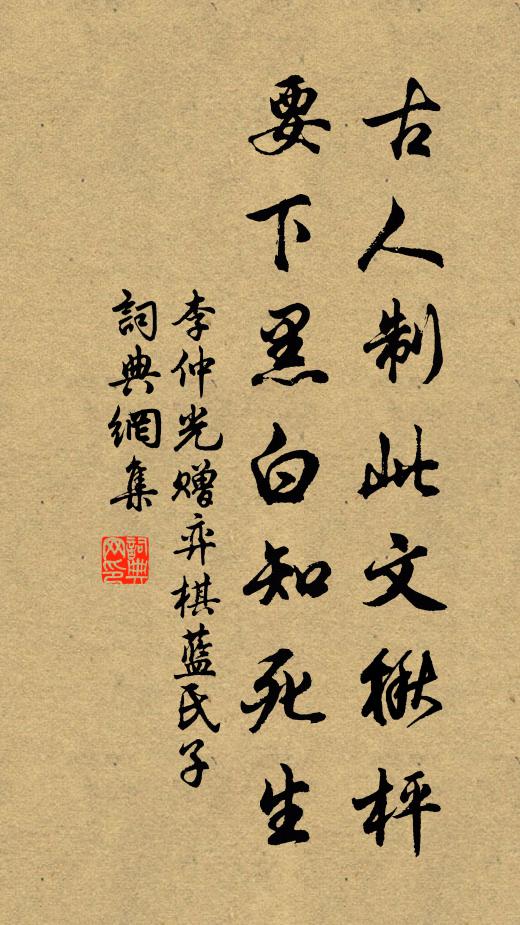 古人制此文楸枰
要下黑白知死生
李仲光赠弈棋蓝氏子
詞典網集
詞典网印